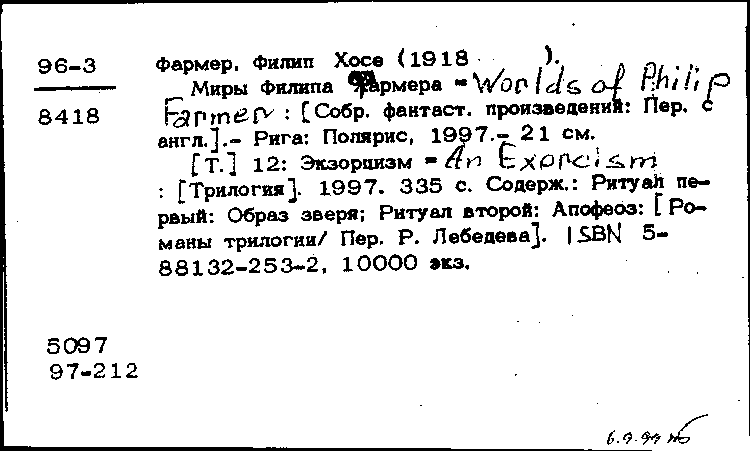 96-3 Фармер, Филип Хосе (1918 ).
Миры Филипа Фармера = Worlds of Philip
8418 Farmer : [Собр. фантаст. произведений: Пер. с
англ.].- Рига: Полярис, 1997.- 21 см.
[Т.] 12: Экзорцизм = An Exorcism
: [Трилогия]. 1997. 335 с. Содерж.: Ритуал пе-
рвый: Образ зверя; Ритуал второй: Апофеоз: [Ро-
маны трилогии/ Пер. Р. Лебедева]. ISBN 5-
88132-253-2, 10000 экз.
5097
97-212
6.9.99